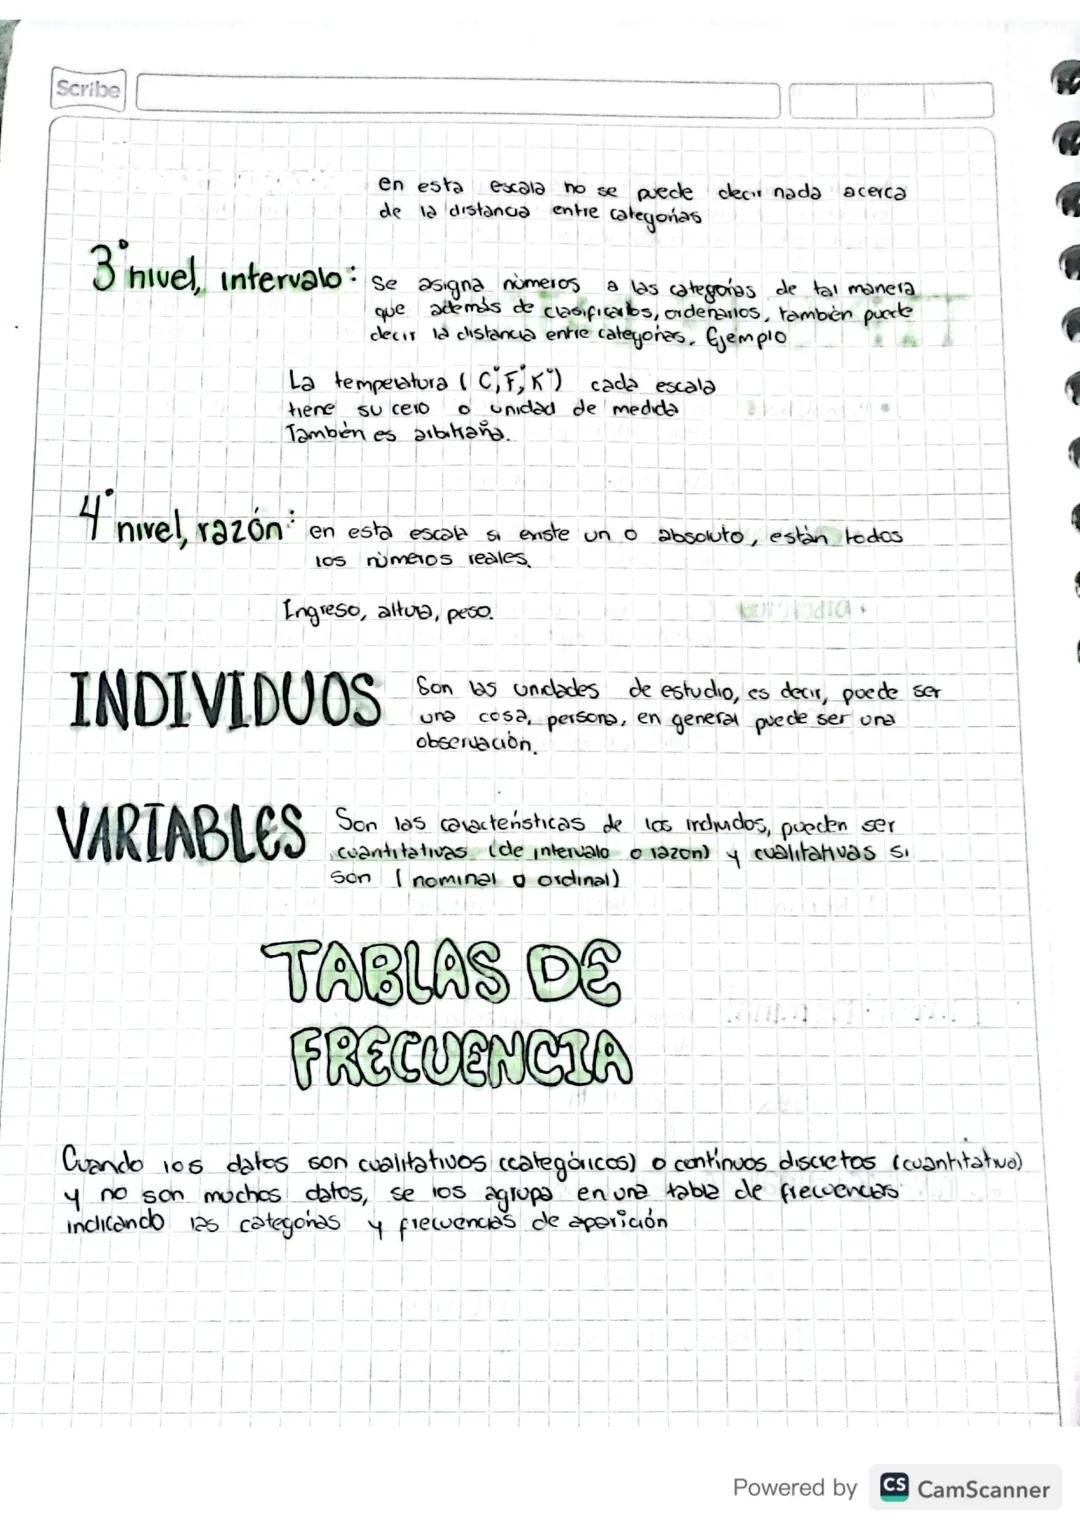 Scribe
en esta escala no se puede decir nada acerca
de la distancia entre categorías
3° nivel, intervalo: Se asigna números a las categorías de tal manera
que además de clasificarlos, ordenarlos, también puede
decir la distancia entre categorías. Ejemplo
La temperatura (C°, F°, K°) cada escala
tiene su cero o unidad de medida
También es arbitraria.
4° nivel, razón: en esta escala si existe un 0 absoluto, están todos
los números reales.
Ingreso, altura, peso.
INDIVIDUOS Son las unidades de estudio, es decir, puede ser
una cosa, persona, en general puede ser una
observación.
VARIABLES Son las características de los individuos, pueden ser
cuantitativas (de intervalo o razon) y cualitativas si
son (nominal o ordinal)
TABLAS DE
FRECUENCIA
Cuando los datos son cualitativos (categóricos) o continuos discretos (cuantitativo)
y no son muchos datos, se los agrupa en una tabla de frecuencias
indicando las categorías y frecuencias de aparición
Powered by CS CamScanner